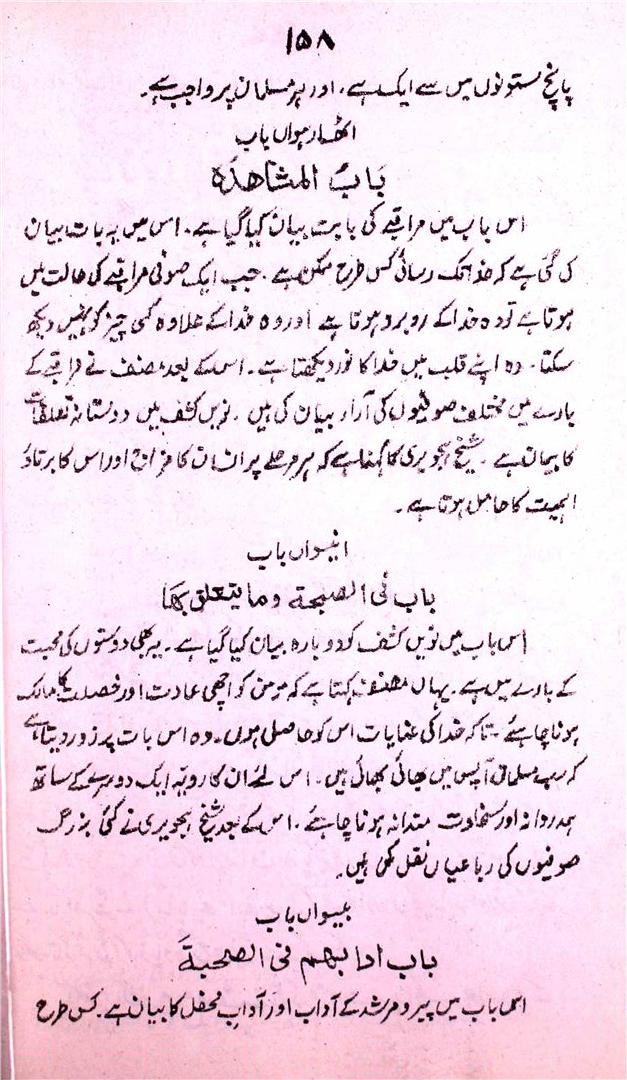 ۱۵۸
پانچ ستونوں میں سے ایک ہے، اور ہر مسلمان پر واجب ہے۔
اٹھارہواں باب
بَابُ المشاھدَہ
اس باب میں مراقبے کی بابت بیان کیا گیا ہے۔ اس میں یہ بات بیان
کی گئی ہے کہ خدا تک رسائی کس طرح ممکن ہے۔ جب ایک صوفی مراقبے کی حالت میں
ہوتا ہے تو وہ خدا کے روبرو ہوتا ہے اور وہ خدا کے علاوہ کسی چیز کو نہیں دیکھ
سکتا۔ وہ اپنے قلب میں خدا کا نور دیکھتا ہے۔ اس کے بعد مصنف نے مراقبے کے
بارے میں مختلف صوفیوں کی آراء بیان کی ہیں۔ نویں کشف میں دوستانہ تعلقات
کا بیان ہے۔ شیخ ہجویری کا کہنا ہے کہ ہر مرحلے پر انسان کا مزاج اور اس کا برتاؤ
اہمیت کا حامل ہوتا ہے۔
انیسواں باب
باب فی الصبحۃ وما یتعلق بھا
اس باب میں نویں کشف کو دوبارہ بیان کیا گیا ہے۔ یہ بھی دوستوں کی محبت
کے بارے میں ہے۔ یہاں مصنف کہتا ہے کہ مومن کو اچھی عادت اور خصلت کا مالک
ہونا چاہئے۔ تاکہ خدا کی عنایات اس کو حاصل ہوں۔ وہ اس بات پر زور دیتا ہے
کہ سب مسلمان آپس میں بھائی بھائی ہیں۔ اس لئے ان کا رویہ ایک دوسرے کے ساتھ
ہمدردانہ اور سخاوت مندانہ ہونا چاہئے۔ اس کے بعد شیخ ہجویری نے کئی بزرگ
صوفیوں کی رباعیاں نقل کی ہیں۔
بیسواں باب
باب ادابھم فی الصحبۃَ
اس باب میں پیر و مرشد کے آداب اور آدابِ محفل کا بیان ہے۔ کس طرح